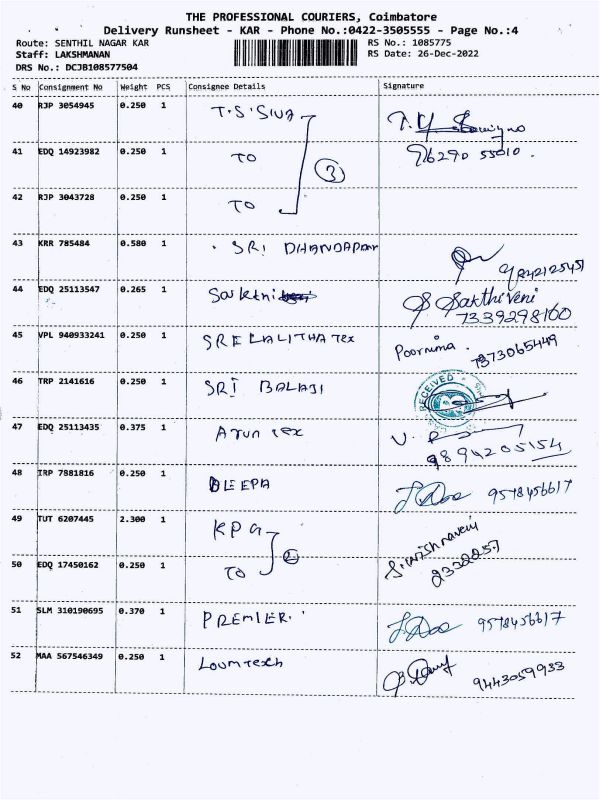 THE PROFESSIONAL COURIERS, Coimbatore
Delivery Runsheet - KAR - Phone No.:0422-3505555 - Page No.:4
Route: SENTHIL NAGAR KAR
RS No.: 1085775
Staff: LAKSHMANAN
RS Date: 26-Dec-2022
DRS No.: DCJB108577504
S No Consignment No Weight PCS Consignee Details Signature
40 RJP 3054945 0.250 1 T.S. SIVA
41 EDQ 14923982 0.250 1 TO 3 96290 55010.
42 RJP 3043728 0.250 1 TO
43 KRR 785484 0.580 1 SRI DHANDAPANI
44 EDQ 25113547 0.265 1 Sakthi Sakthiveni
7339298160
45 VPL 940933241 0.250 1 SRE LALITHA Tex Poornima. 7373065449
46 TRP 2141616 0.250 1 SRI BALAJI RECEIVED
47 EDQ 25113435 0.375 1 Arun tex
9894205154
48 IRP 7881816 0.250 1 DEEPA 9578456617
49 TUT 6207445 2.300 1 KPG
50 EDQ 17450162 0.250 1 TO 2 2332257
51 SLM 310190695 0.370 1 PREMIER. 9578456617
52 MAA 567546349 0.250 1 9443059933